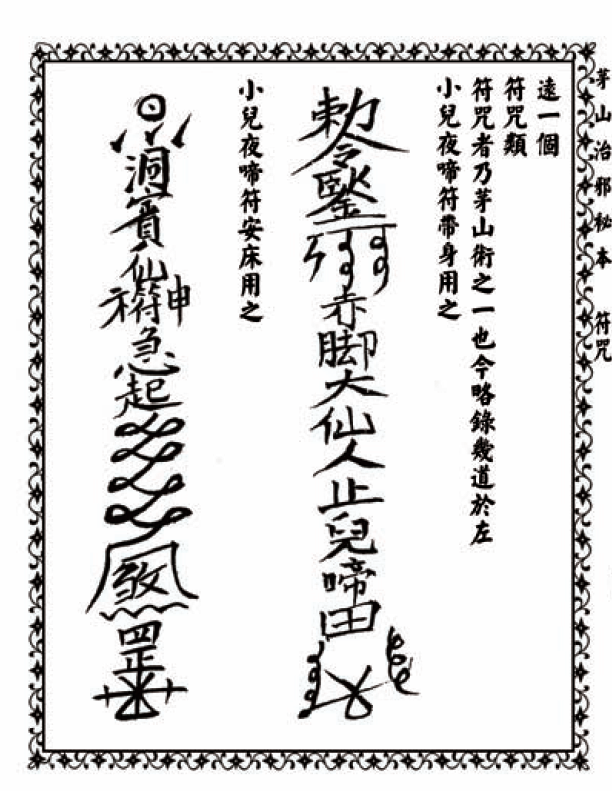 茅山治邪秘本 符咒
遠一個
符咒類
符咒者乃茅山術之一也今略錄幾道於左
小兒夜啼符帶身用之
勅令 赤脚大仙人止兒啼
小兒夜啼符安床用之
洞賓仙 神符急起 罡